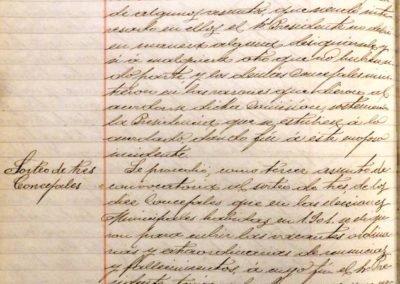 de algunos asuntos, que siendo inte-
resado en ellos el Sr Presidente no debe
en manera alguna designarla, y
si á cualquiera otro que no hubiera
do parte, y los demás Concejales
en las razones que dieron al
acordar dicha Comisión,
la Presidencia que se estubiera á lo
acordado, dando fin á este enojoso
incidente.
Sorteo de tres
Concejales
Se procedió, como tercer asunto de
convocatoria al sorteo de tres de los
diez Concejales que en las elecciones
Municipales habidas en 1901 se eligie-
ron para cubrir las vacantes ordina-
rias y extraordinarias de renuncias
y fallecimientos, á cuyo fin el Sr Pre-